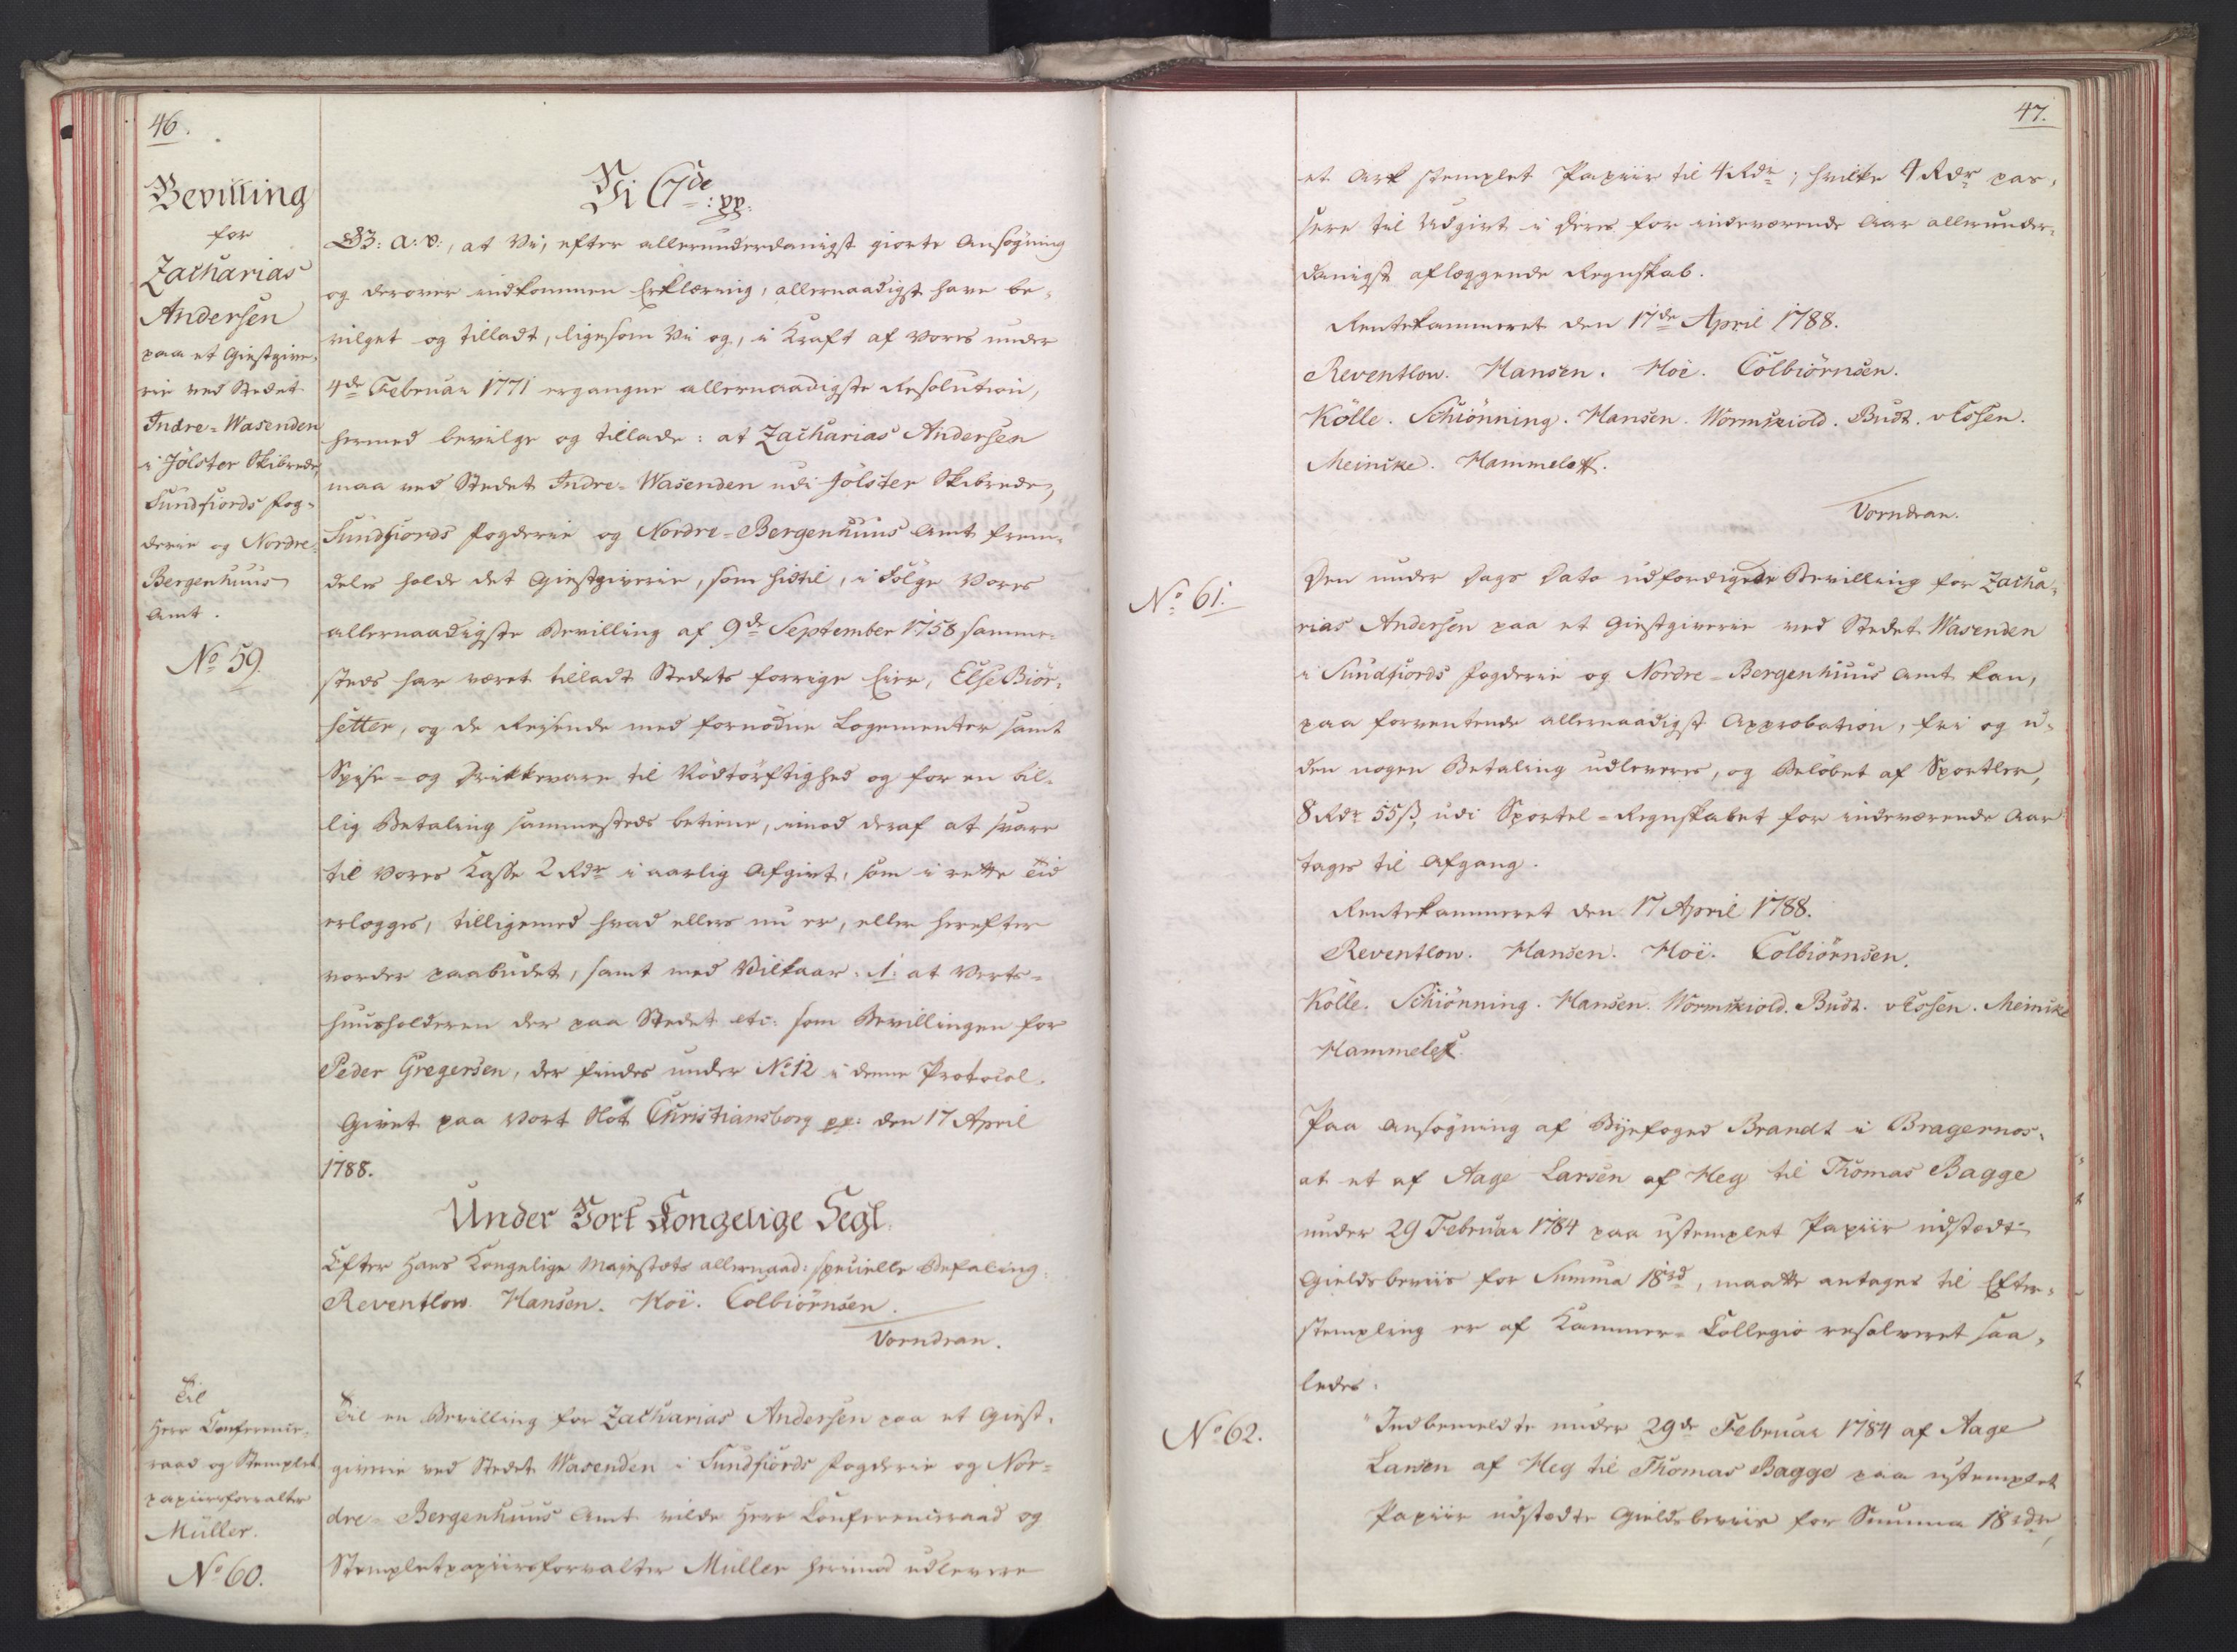 46.
Bevilling
for
Zacharias
Andersen
paa et Giestgive-
rie ved Stedet
Indre-Wasenden
i Jölster Skibrede,
Sundfiords Fog-
derie og Nordre-
Bergenhuus
Amt.
No 59.
Vi C 7de: pp:
G: a: v:, at Vi, efter allerunderdanigst giorte Ansøgning
og derover indkommen Erklæring, allernaadigst have be-
vilget og tilladt, ligesom Vi og, i Kraft af Vores under
4de Februar 1771 ergangne allernaadigste Resolution,
hermed bevilge og tillade: at Zacharias Andersen
maa ved Stedet Indre-Wasenden udi Jölster Skibrede,
Sundfiords Fogderie og Nordre-Bergenhuus Amt frem-
deles holde det Giestgiverie, som hidtil, i Følge Vores
allernaadigste Bevilling af 9de September 1758 samme-
steds har været tilladt Stedets forrige Eier, Else Biör-
setter, og de Reisende med fornödne Logementer samt
Spise- og Drikkevare til Nödtörftighed og for en bil-
lig Betaling sammesteds betiene, imod deraf at svare
til Vores Kasse 2 Rdr i aarlig Afgivt, som i rette Tid
erlægges, tilligemed hvad ellers nu er, eller herefter
vorder paabudet, samt med Vilkaar: 1: at Verts-
huusholderen der paa Stedet etc: som Bevillingen for
Peder Gregersen, der findes under No 12 i denne Protocol.
Givet paa Vort Slot Christiansborg pp: den 17 April
1788.
Under Vort Kongelige Segl.
Efter Hans Kongelige Majestæts allernaad: specielle Befaling.
Reventlow. Hansen. Hoë. Colbiörnsen.
Vorndran.
Til
Herr Conferenz-
raad og Stemplet
papiirsforvalter
Müller.
No 60.
Til en Bevilling for Zacharias Andersen paa et Giest-
giverie ved Stedet Wasenden i Sundfiords Fogderie og Nor-
dre-Bergenhuus Amt vilde Herr Conferenzraad og
Stempletpapiirsforvalter Müller herimod udlevere
47.
et Ark stemplet Papiir til 4 Rdr; hvilke 4 Rdr pas-
sere til Udgivt i Deres for indeværende Aar allerunder-
danigst aflæggende Regnskab.
Rentekammeret den 17de April 1788.
Reventlow. Hansen. Hoë. Colbiörnsen.
Kölle. Schiönning. Hansen. Wormskiold. Budt. v Essen.
Meincke. Hammeleff.
Vorndran.
No 61.
Den under Dags Dato udfærdigede Bevilling for Zacha-
rias Andersen paa et Giestgiverie ved Stedet Wasenden
i Sundfiords Fogderie og Nordre-Bergenhuus Amt kan,
paa forventende allernaadigst Approbation, frie og u-
den nogen Betaling udleveres, og Beløbet af Sportler,
8 Rdr 55 ß, udi Sportel-Regnskabet for indeværende Aar
tages til Afgang.
Rentekammeret den 17 April 1788.
Reventlow. Hansen. Hoë. Colbiörnsen.
Kölle. Schiönning. Hansen. Wormskiold. Budt. v Essen. Meincke
Hammeleff.
Paa Ansøgning af Byefoged Brandt i Bragernæs,
at et af Aage Larsen af Heg til Thomas Bagge
under 29 Februar 1784 paa ustemplet Papiir udstædt
Gieldsbeviis for Summa 18 rd, maatte antages til Efter-
stempling er af Kammer-Collegio resolveret saa-
ledes:
No 62.
"Indbemeldte under 29de Februar 1784 af Aage
Larsen af Heg til Thomas Bagge paa ustemplet
Papiir udstædte Gieldsbeviis for Summa 18 rdr,